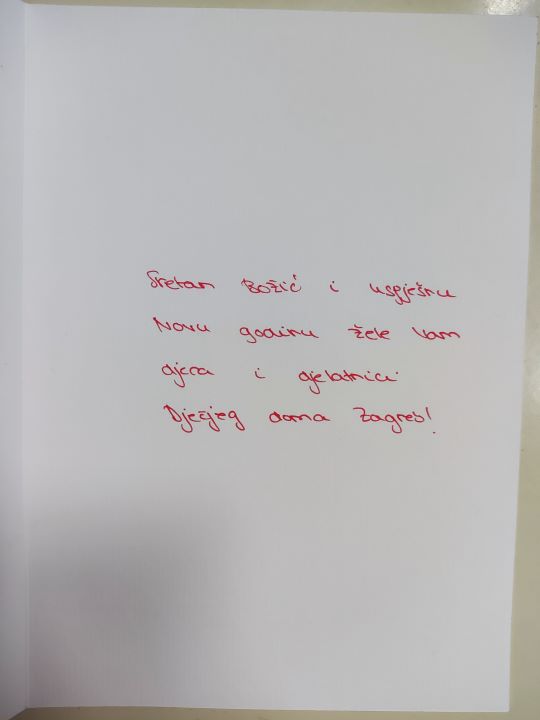 Sretan Božić i uspješnu
Novu godinu žele Vam
djeca i djelatnici
Dječjeg doma Zagreb!